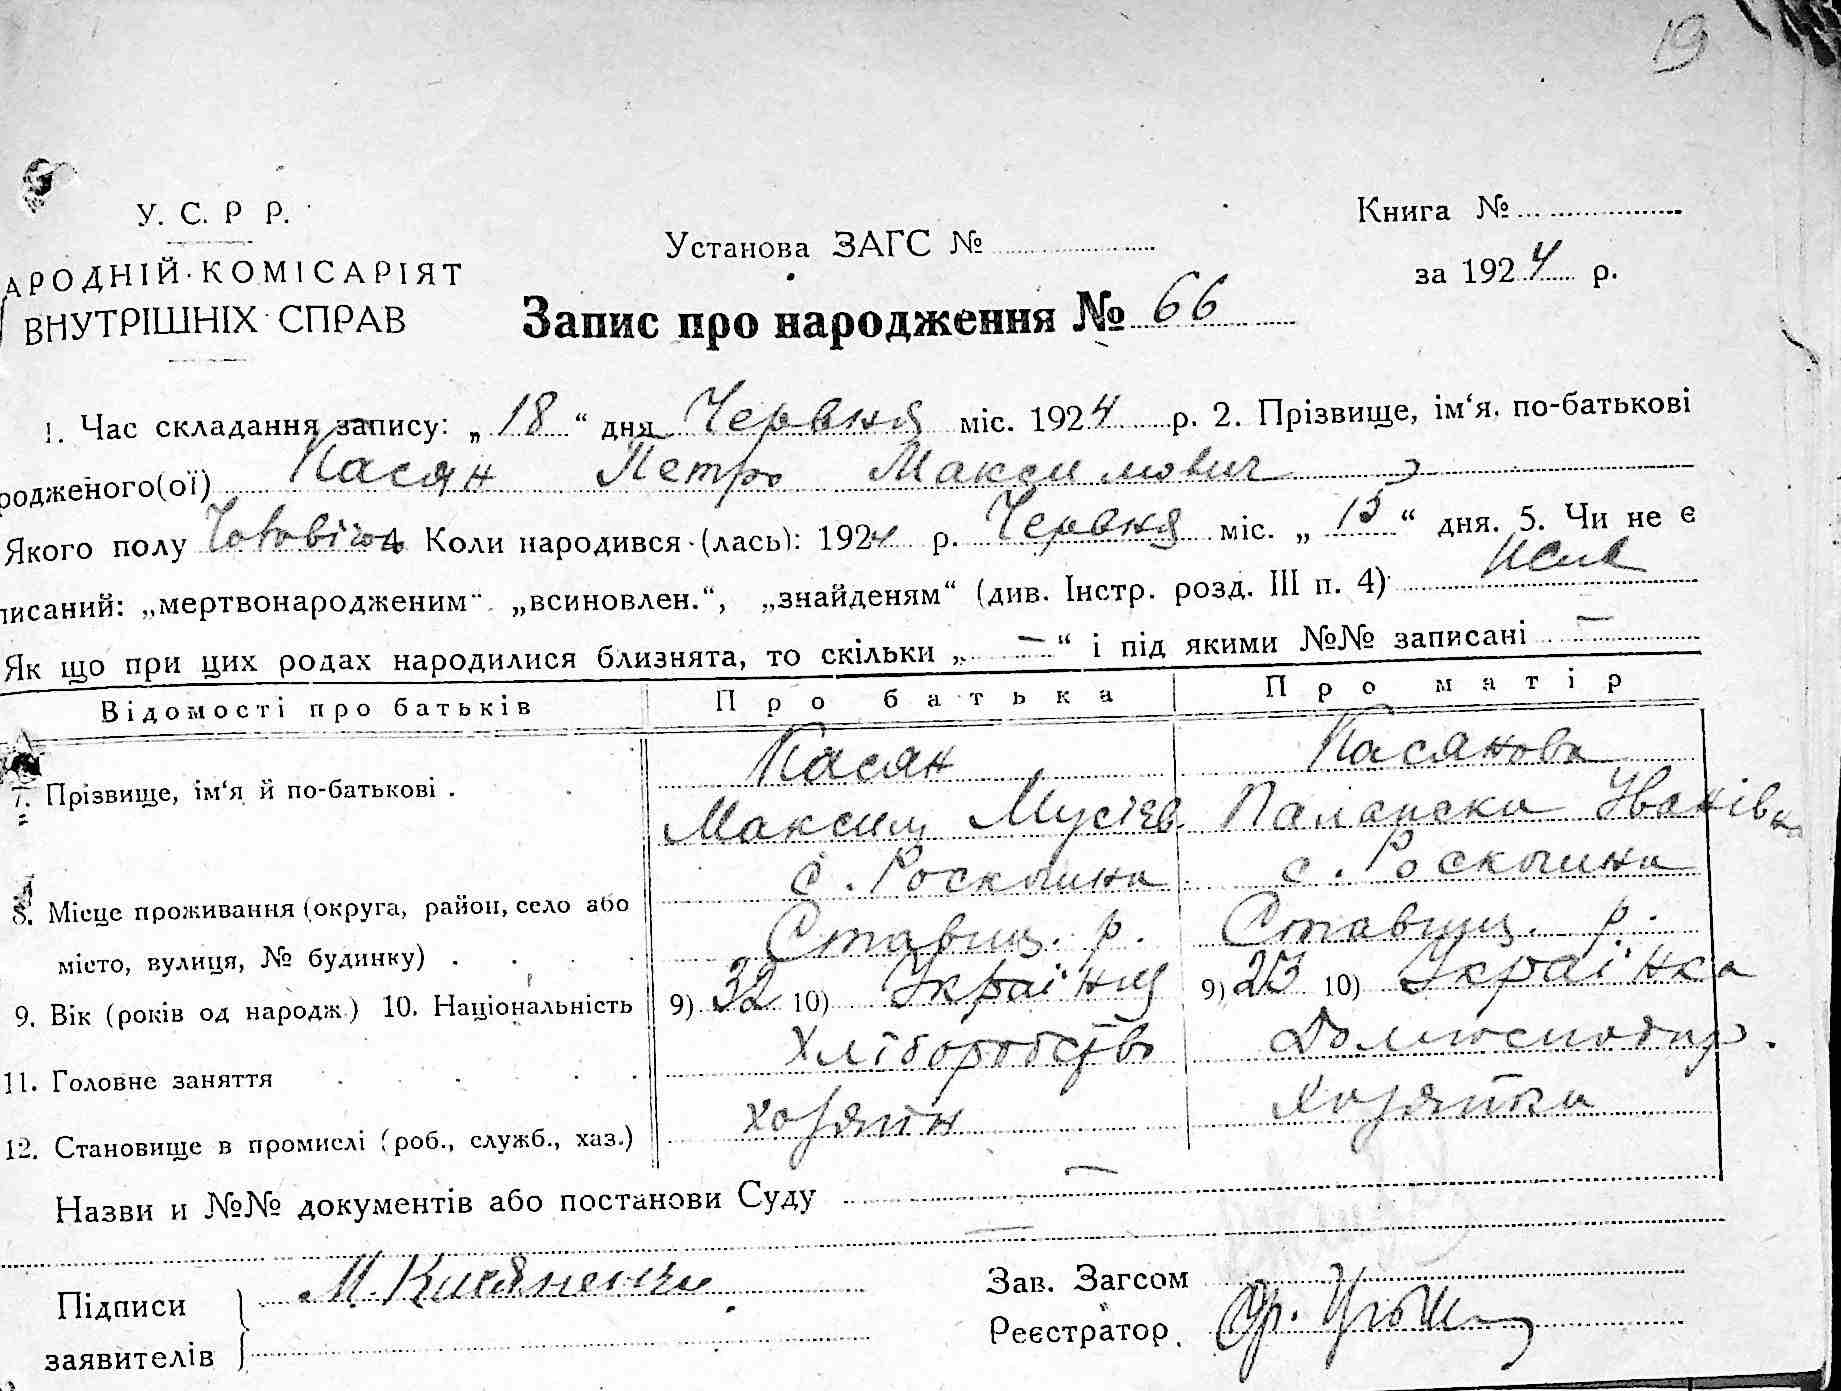 19
У. С. Р Р.
АРОДНІЙ КОМІСАРІЯТ
ВНУТРІШНІХ СПРАВ
Установа ЗАГС №
Книга №
за 1924 р.
Запис про народження № 66
1. Час складання запису: „18“ дня Червня міс. 1924 р. 2. Прізвище, ім‘я, по-батькові
родженого(ої) Касян Петро Максимович
Якого полу Чоловіч. 4 Коли народився (лась): 1924 р. Червня міс. „15“ дня. 5. Чи не є
писаний: „мертвонародженим“, „всиновлен.“, „знайденям“ (див. Інстр. розд. III п. 4)
Як що при цих родах народилися близнята, то скільки „—“ і під якими №№ записані —
Відомості про батьків Про батька Про матір
7. Прізвище, ім‘я й по-батькові . Касян Касянова
Максим Мусієв Палажка Іванівна
с. Роскошна с. Роскошна
8. Місце проживання (округа, район, село або
місто, вулиця, № будинку) . Ставищ. р. Ставищ. р.
9. Вік (років од народж.) 10. Національність 9) 32 10) Українец 9) 23 10) Українка
11. Головне заняття Хліборобство Домогосподар.
12. Становище в промислі (роб., служб., хаз.) хозяїн хозяйка
Назви и №№ документів або постанови Суду —
—
Підписи заявителів М. Касяненко
Зав. Загсом
Реєстратор